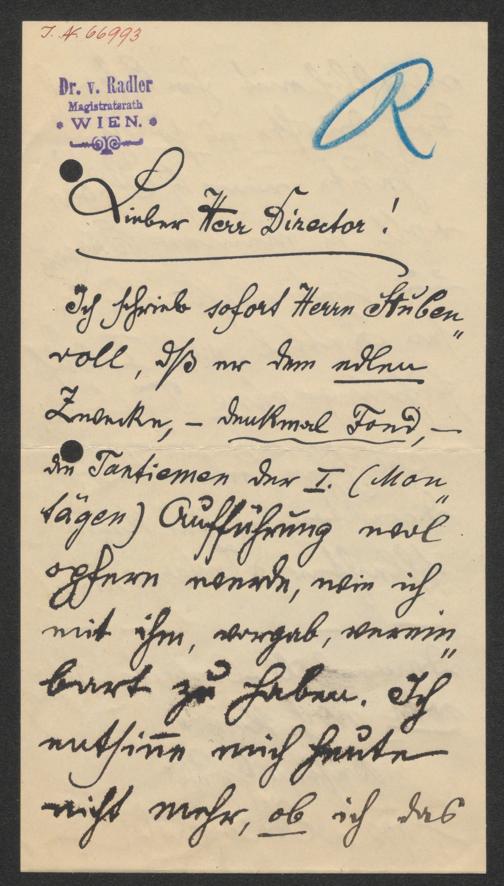 I. N. 66993
Dr. v. Radler
Magistratsrath
WIEN.
R
Lieber Herr Director!
Ich schrieb sofort Herrn Stuben„
voll, dß er dem edlen
Zwecke, – Denkmal Fond, –
die Tantiemen der I. (Mon„
tägen) Aufführung wol
opfern werde, wie ich
mit ihm, vorgab, verein„
bart zu haben. Ich
entsinne mich heute
nicht mehr, ob ich das